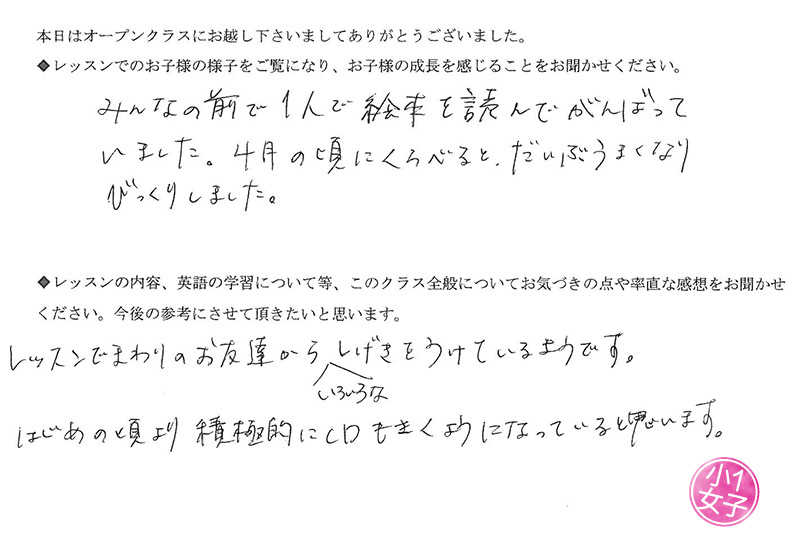 本日はオープンクラスにお越し下さいましてありがとうございました。
◆レッスンでのお子様の様子をご覧になり、お子様の成長を感じることをお聞かせください。
みんなの前で1人で絵本を読んでがんばって
いました。4月の頃にくらべると、だいぶうまくなり
びっくりしました。
◆レッスンの内容、英語の学習について等、このクラス全般についてお気づきの点や率直な感想をお聞かせ
ください。今後の参考にさせて頂きたいと思います。
レッスンでまわりのお友達からしげきをうけているようです。
いろいろな
はじめの頃より積極的にCDもきくようになっていると思います。
小1
女子